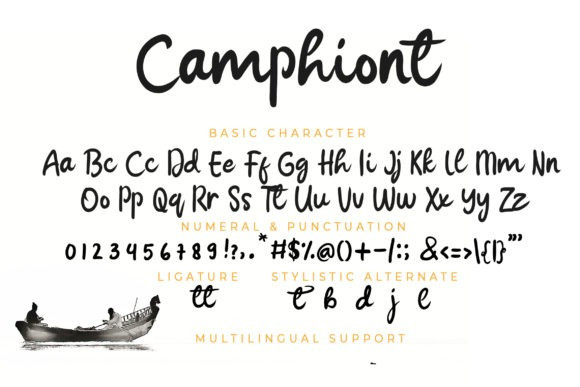 Camphiont
BASIC CHARACTER
Aa Bb Cc Dd Ee Ff Gg Hh Ii Jj Kk Ll Mm Nn
Oo Pp Qq Rr Ss Tt Uu Vv Ww Xx Yy Zz
NUMERAL & PUNCTUATION
0123456789!?,.*#$%@()+-/:; &<=>\{|}"'
LIGATURE STYLISTIC ALTERNATE
tt t b d j l
MULTILINGUAL SUPPORT